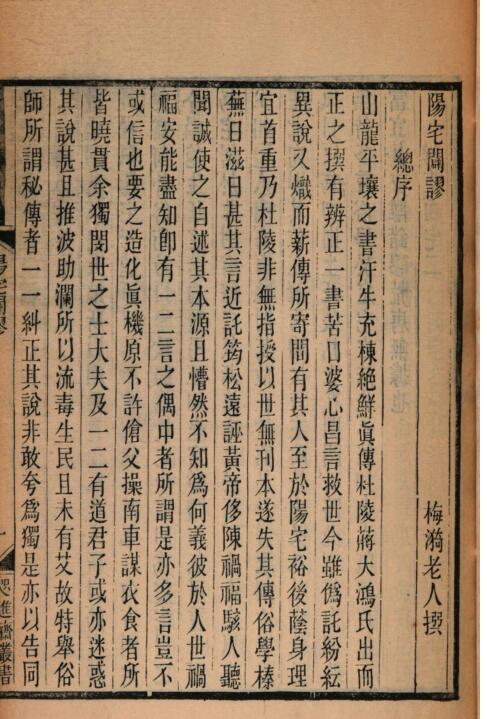 陽宅闢謬
總序
梅漪老人撰
山龍平壤之書汗牛充棟絶鮮眞傳杜陵蔣大鴻氏出而
正之撰有辨正一書苦口婆心昌言救世今雖僞託紛紜
異說又熾而薪傳所寄間有其人至於陽宅裕後蔭身理
宜首重乃杜陵非無指授以世無刊本遂失其傳俗學榛
蕪日滋日甚其言近託筠松遠誣黃帝侈陳禍福駭人聽
聞誠使之自述其本源且懵然不知爲何義彼於人世禍
福安能盡知卽有一二言之偶中者所謂是亦多言豈不
或信也要之造化眞機原不許傖父操南車謀衣食者所
皆曉貫余獨閔世之士大夫及一二有道君子或亦迷惑
其說甚且推波助瀾所以流毒生民且未有艾故特舉俗
師所謂秘傳者一一糾正其說非敢夸爲獨是亦以告同
陽宅闢謬
一
咫進齋叢書